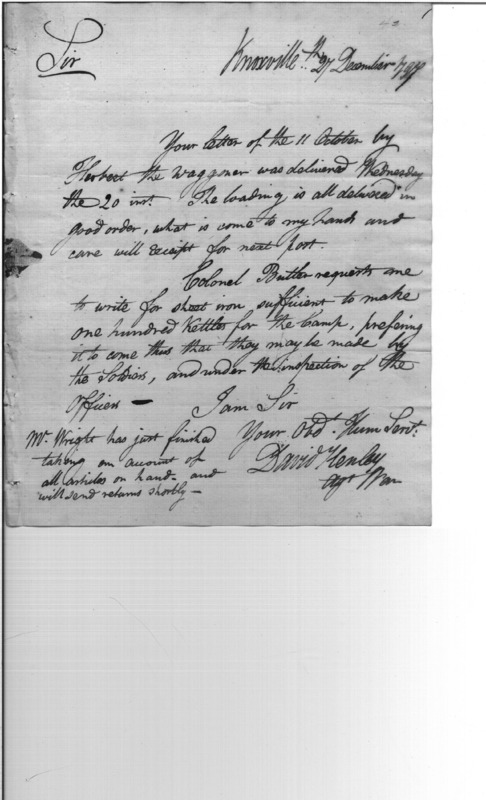 Sir
Knoxville 27th December 1797
Your letter of the 11 October by
Herbert the Waggoner was delivered Wednesday
the 20 inst. The loading is all delivered in
good order, what is come to my hands and
care will receipt for next post.
Colonel Butler requests me
to write for sheet iron sufficient to make
one hundred Kettles for the Camp, prefering
it to come thus that they may be made by
the Soldiers, and under the inspection of the
Officers —
I am Sir
Your Obdt. Hum Servt.
David Henley
Agt War
Mr. Wright has just finished
taking an account of
all articles on hand - and
will send returns shortly —